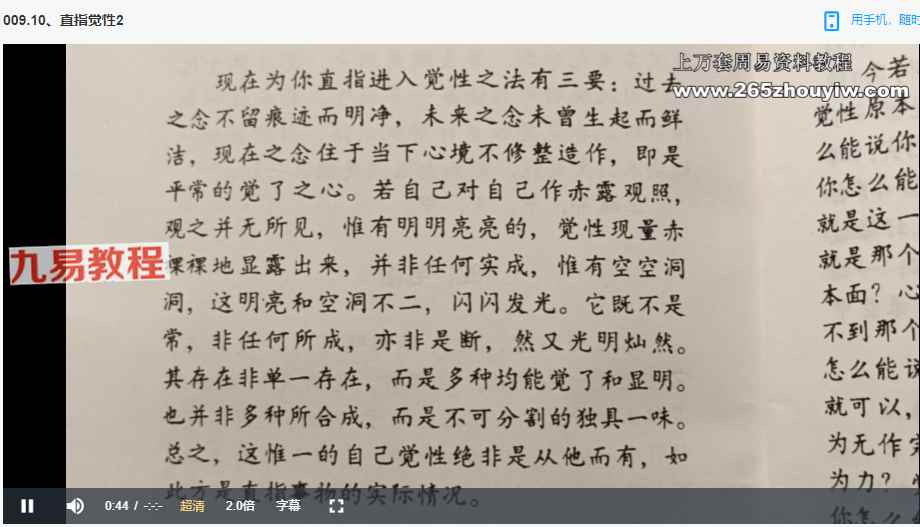 009.10、直指觉性2
用手机，随时
上万套周易资料教程
www.265zhouyiw.com
九易教程
现在为你直指进入觉性之法有三要：过去
之念不留痕迹而明净，未来之念未曾生起而鲜
洁，现在之念住于当下心境不修整造作，即是
平常的觉了之心。若自己对自己作赤露观照，
观之并无所见，惟有明明亮亮的，觉性现量赤
裸裸地显露出来，并非任何实成，惟有空空洞
洞，这明亮和空洞不二，闪闪发光。它既不是
常，非任何所成，亦非是断，然又光明灿然。
其存在非单一存在，而是多种均能觉了和显明。
也并非多种所合成，而是不可分割的独具一味。
总之，这惟一的自己觉性绝非是从他而有，如
此方是直指事物的实际情况。
今若
觉性原本
么能说你
你怎么能
就是这一
就是那个
本面？心
不到那个
怎么能说
就可以，
为无作完
为力？
你怎么
0:44 / -:-:-
超清
2.0倍
字幕